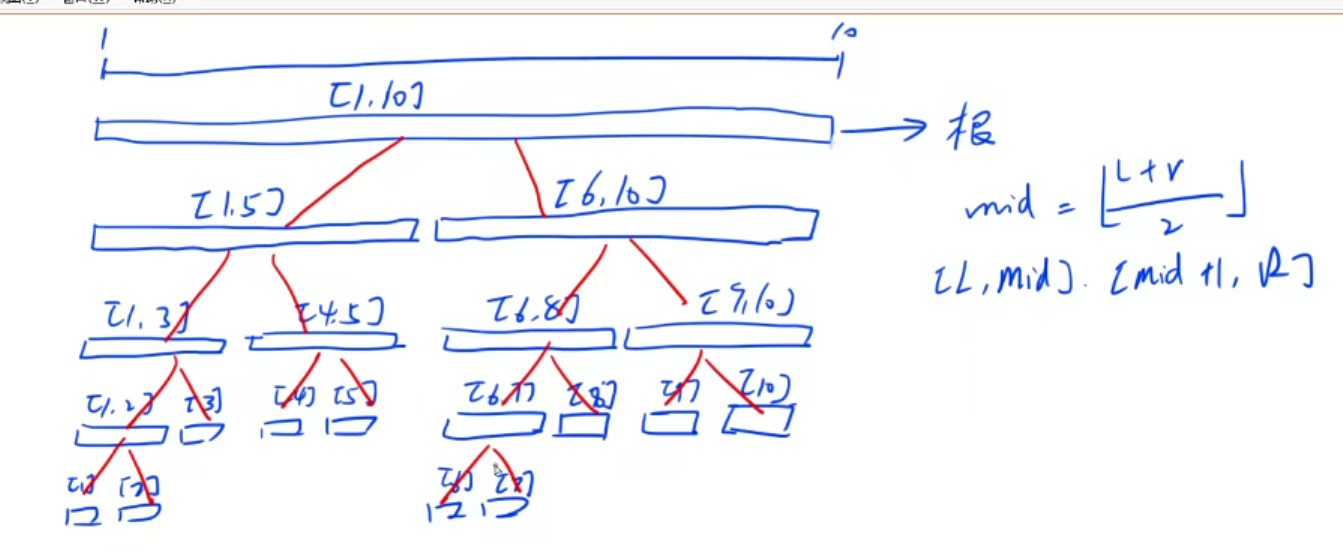 1 10
[1.10]
根
[1.5] [6,10]
mid = ⌊L+r/2⌋
[L,mid]. [mid+1, R]
[1,3] [4.5] [6,8] [9,10]
[1,2] [3] [4] [5] [6,7] [8] [9] [10]
[1] [2] [6] [7]